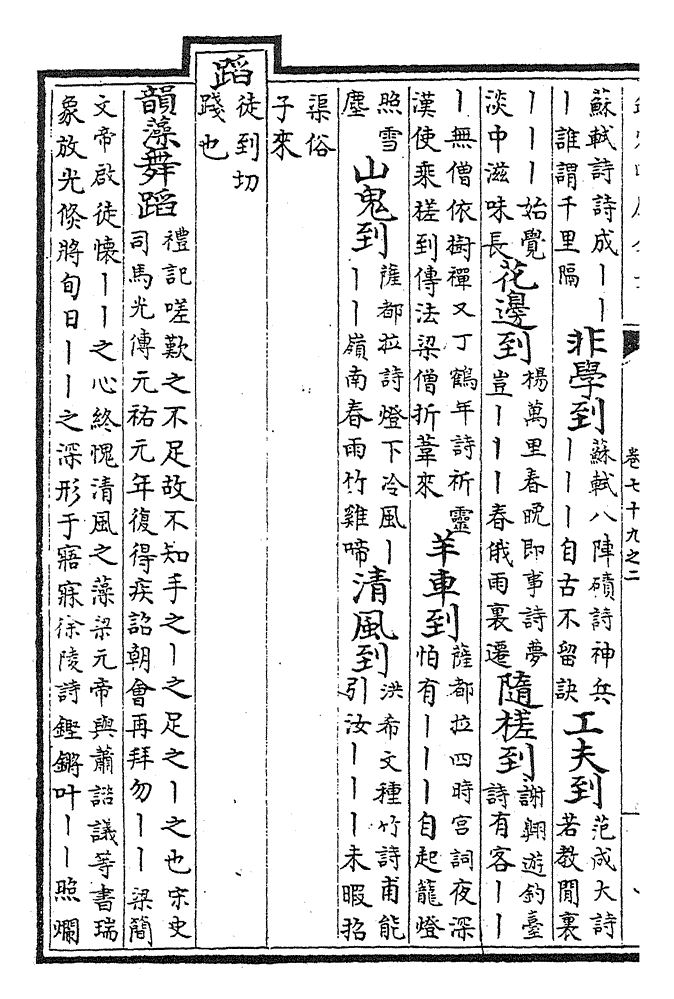 卷七十九之二
蘇軾詩詩成丨丨
丨誰謂千里隔
非學到
蘇軾八陣磧詩神兵
丨丨丨自古不留訣
工夫到
范成大詩
若教閒裏
丨丨丨始覺
淡中滋味長
花邊到
楊萬里春晚即事詩夢
豈丨丨丨春俄雨裏遷
隨槎到
謝翱遊釣臺
詩有客丨丨
丨無僧依樹禪又丁鶴年詩祈靈
漢使乘槎到傳法梁僧折葦來
羊車到
薩都拉四時宮詞夜深
怕有丨丨丨自起籠燈
照雪
塵
山鬼到
薩都拉詩燈下冷風丨
丨丨嶺南春雨竹雞啼
清風到
洪希文種竹詩甫能
引汝丨丨丨未暇招
渠俗
子來
蹈
徒到切
踐也
韻藻舞蹈
禮記嗟歎之不足故不知手之丨之足之丨之也宋史
司馬光傳元祐元年復得疾詔朝會再拜勿丨丨梁簡
文帝啟徒懷丨丨之心終愧清風之藻梁元帝與蕭諮議等書瑞
象放光倐將旬日丨丨之深形于寤寐徐陵詩鏗鏘叶丨丨照爛